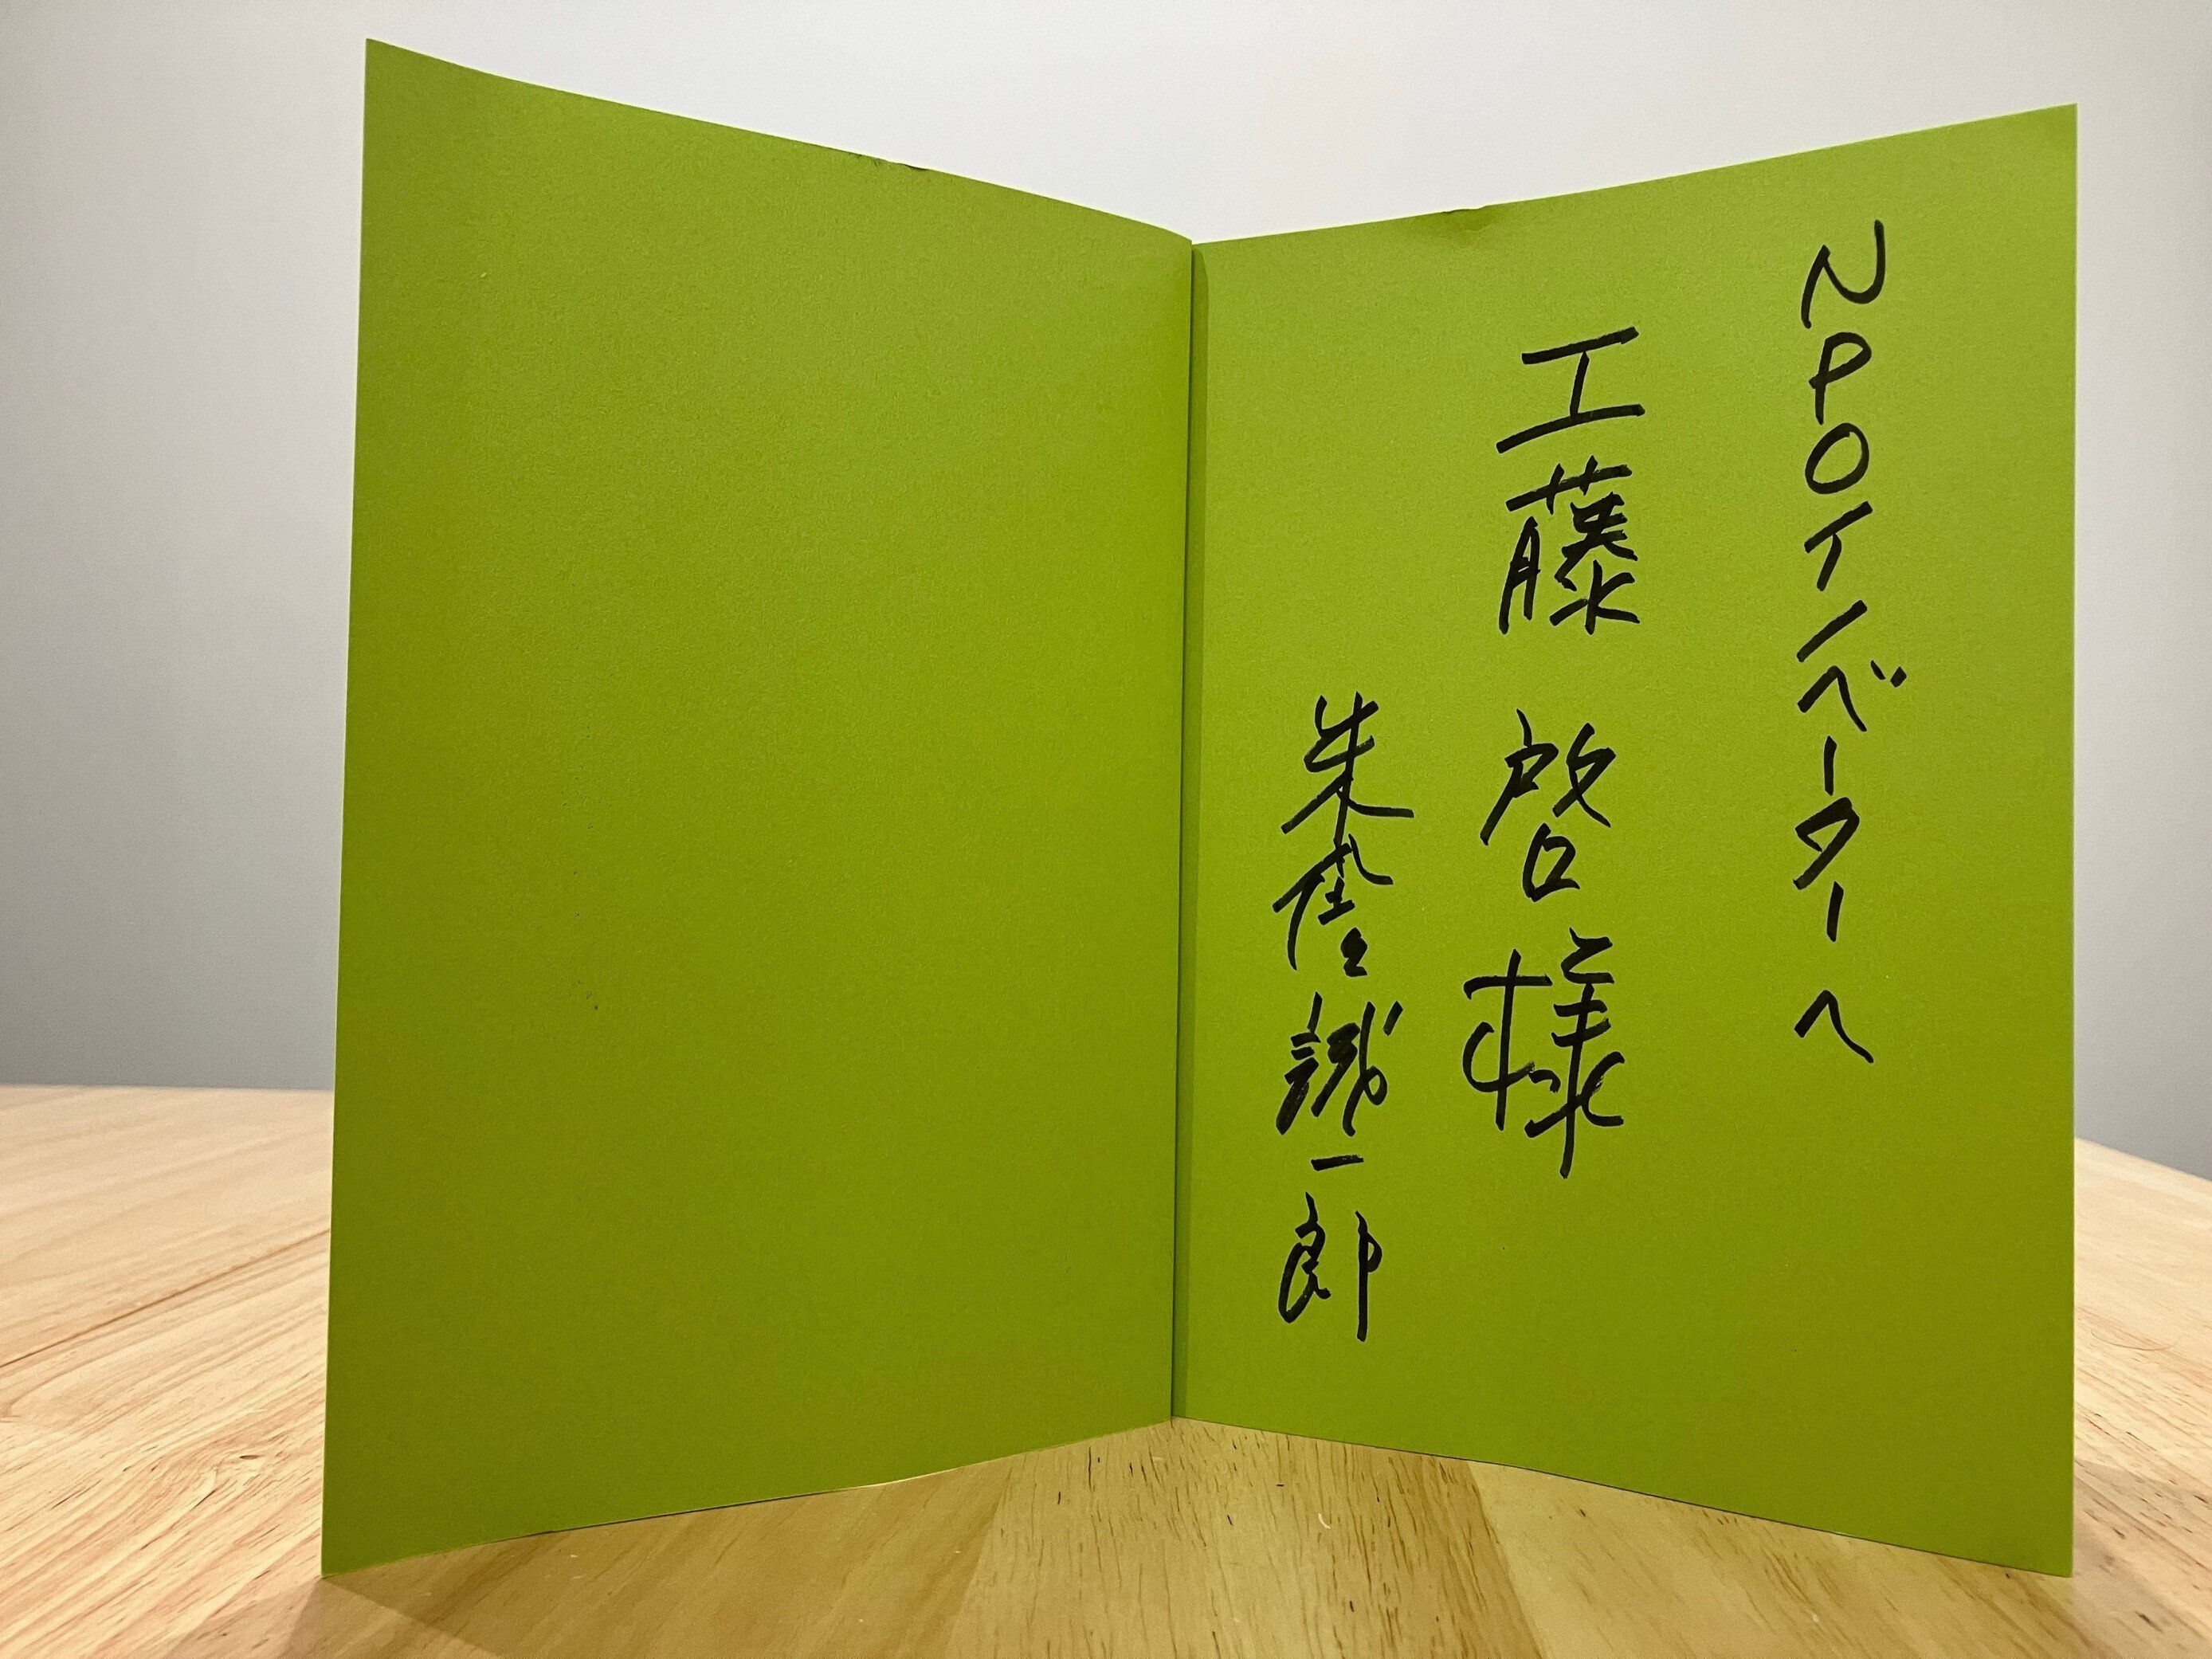 NPOイノベーターへ
工藤 啓様
朱 誠一郎